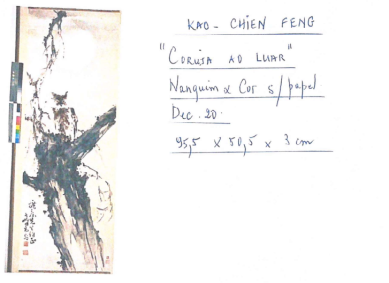 KAO - CHIEN FENG
"CORUJA AO LUAR"
Nanquim e Cor s/papel
Dec. 20.
95,5 x 50,5 x 3 cm